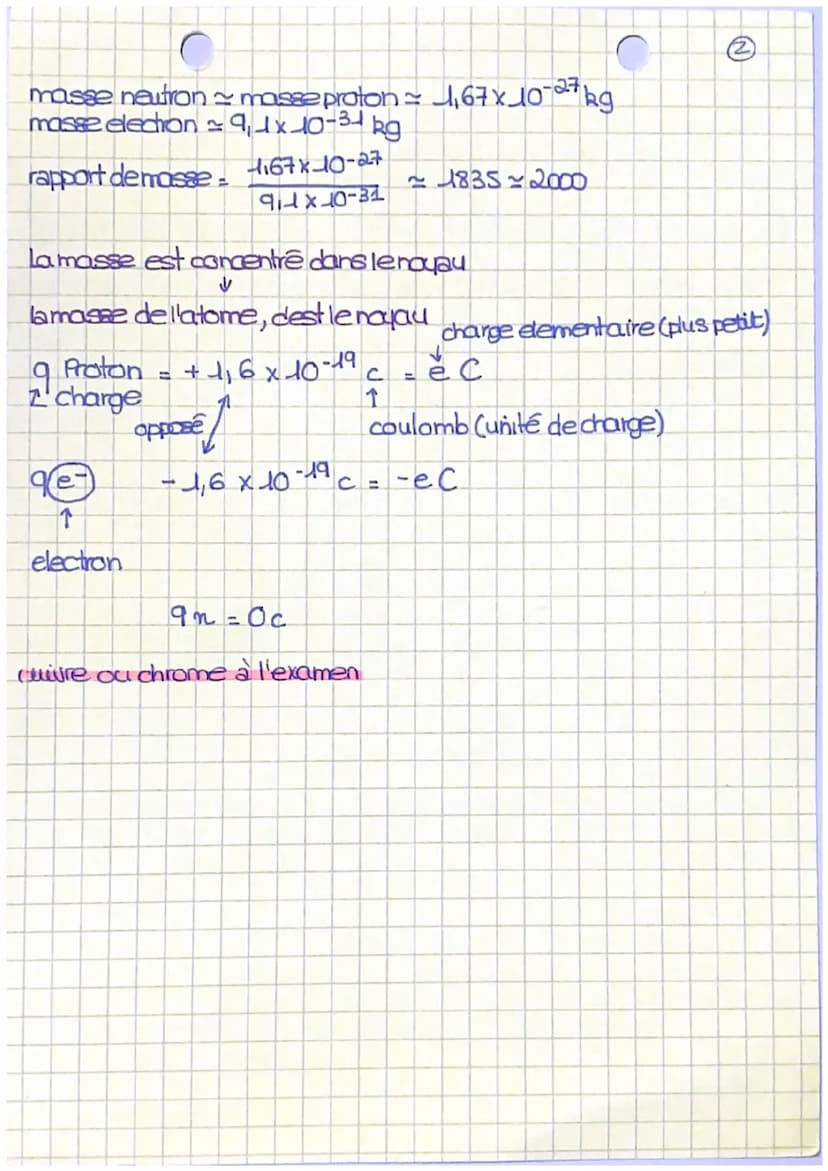 ②
masse neutron ≃ masse proton ≃ 1,67 x 10⁻²⁷ kg
masse electron ≃ 9,1 x 10⁻³¹ kg
rapport de masse = 1,67 x 10⁻²⁷ / 9,1 x 10⁻³¹ ≃ 1835 ≃ 2000
la masse est concentré dans le noyau
↓
la masse de l'atome, c'est le noyau
charge elementaire (plus petit)
q Proton = + 1,6 x 10⁻¹⁹ c = e C
↳ charge
opposé
↑
coulomb (unité de charge)
q(e⁻) - 1,6 x 10⁻¹⁹ c = -e C
↑
electron
qn = 0c
cuivre ou chrome à l'examen